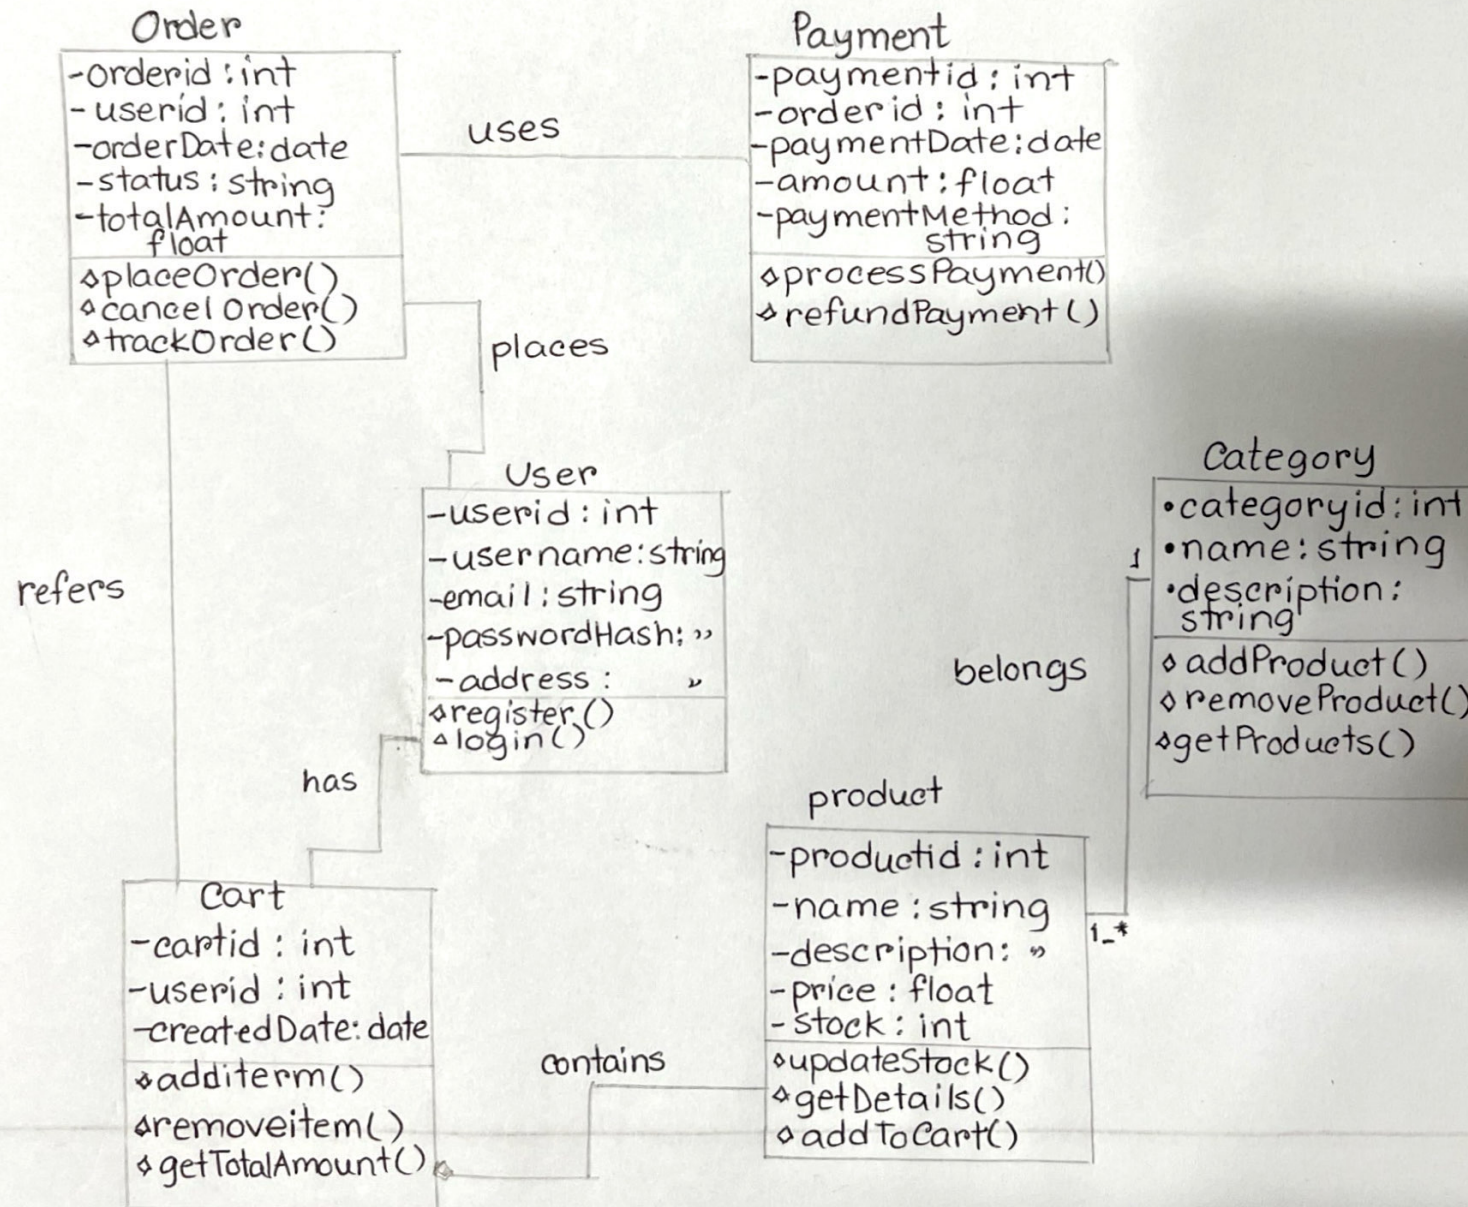 Order
-orderid : int
- userid : int
-orderDate: date
-status : string
-totalAmount:
float
placeOrder()
cancelOrder()
trackOrder()
uses
Payment
-paymentid : int
-orderid : int
-paymentDate: date
-amount : float
-paymentMethod :
string
processPayment()
refundPayment()
places
refers
User
-userid : int
-username: string
-email : string
-passwordHash: ”
-address : ”
register()
login()
has
Category
•categoryid: int
•name: string
•description:
string
addProduct()
removeProduct()
getProducts()
1
belongs
1_*
product
-productid : int
-name : string
-description: ”
-price : float
-stock : int
updateStock()
getDetails()
addToCart()
contains
Cart
-cartid : int
-userid : int
-createdDate: date
additerm()
removeitem()
getTotalAmount()